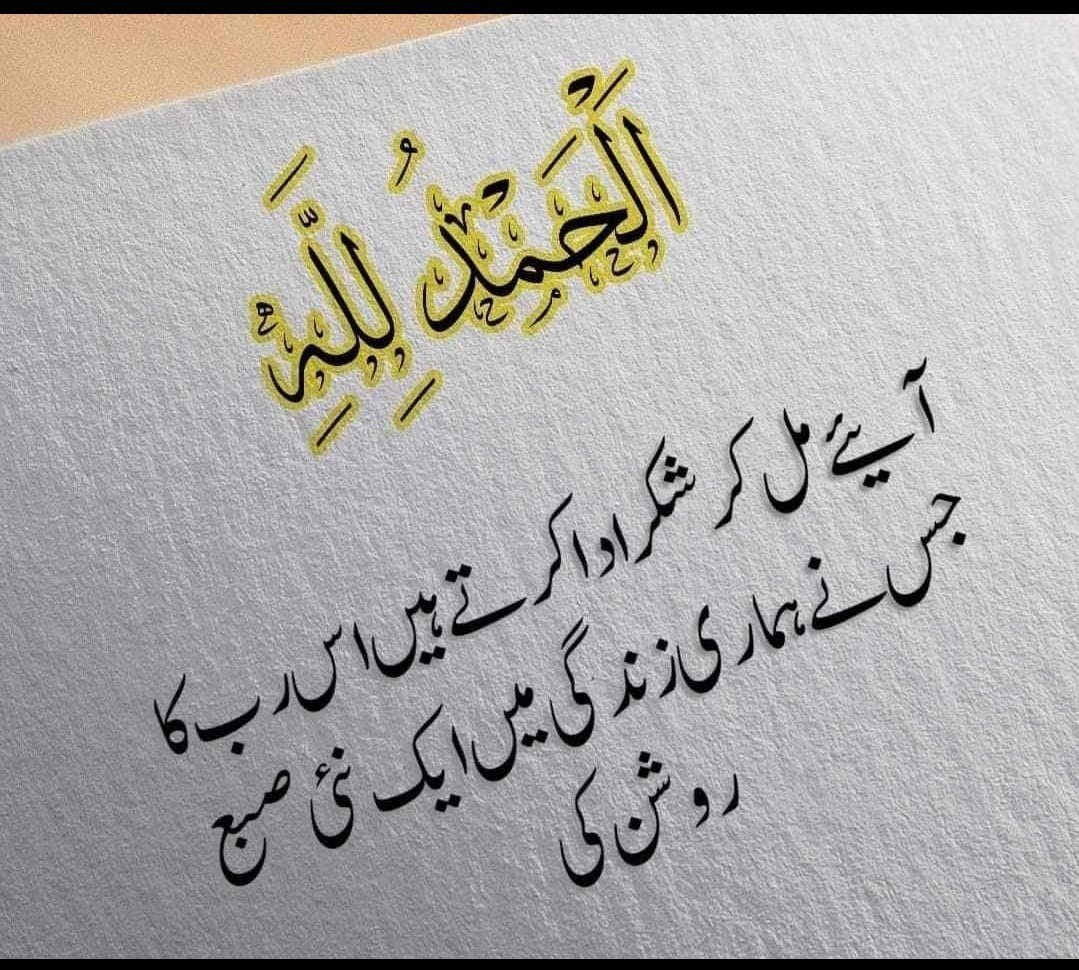 اَلْحَمْدُ لِلّٰهِ
آیئے مل کر شکر ادا کرتے ہیں اس رب کا
جس نے ہماری زندگی میں ایک نئی صبع
روشن کی